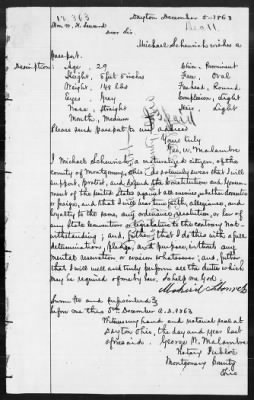 Dayton December 5. 1863
Hon W. H. Seward
Dear Sir.
Michael Schewish wishes a
passport.
Description: Age, 29 Chin, Prominent
Height, 5 feet 5 inches Face, Oval
Weight, 148 lbs Forehead, Round
Eyes, Grey Complexion, Light
Nose, Straight Hair, Light
Mouth, Medium
Please send passport to my address
Yours truly
Geo. W. Malambre
I Michael Schewish, a naturalized citizen, of the
county of Montgomery, Ohio, do solemnly swear that I will
support, protect, and defend the Constitution and Govern-
ment of the United States against all enemies, whether domestic
or foreign, and that I will bear true faith, allegiance, and
loyalty to the same, any ordinance, resolution, or law of
any State convention or legislature to the contrary not-
withstanding; and, further, that I do this with a full
determination, pledge, and purpose, without any
mental reservation or evasion whatsoever; and, further,
that I will well and truly perform all the duties which
may be required of me by law. So help me God.
Sworn to and subscribed
before me this 5th December A.D. 1863
Witness my hand and notarial seal at
Dayton Ohio, the day and year last
aforesaid. George W. Malambre
Notary Public
Montgomery County
Ohio